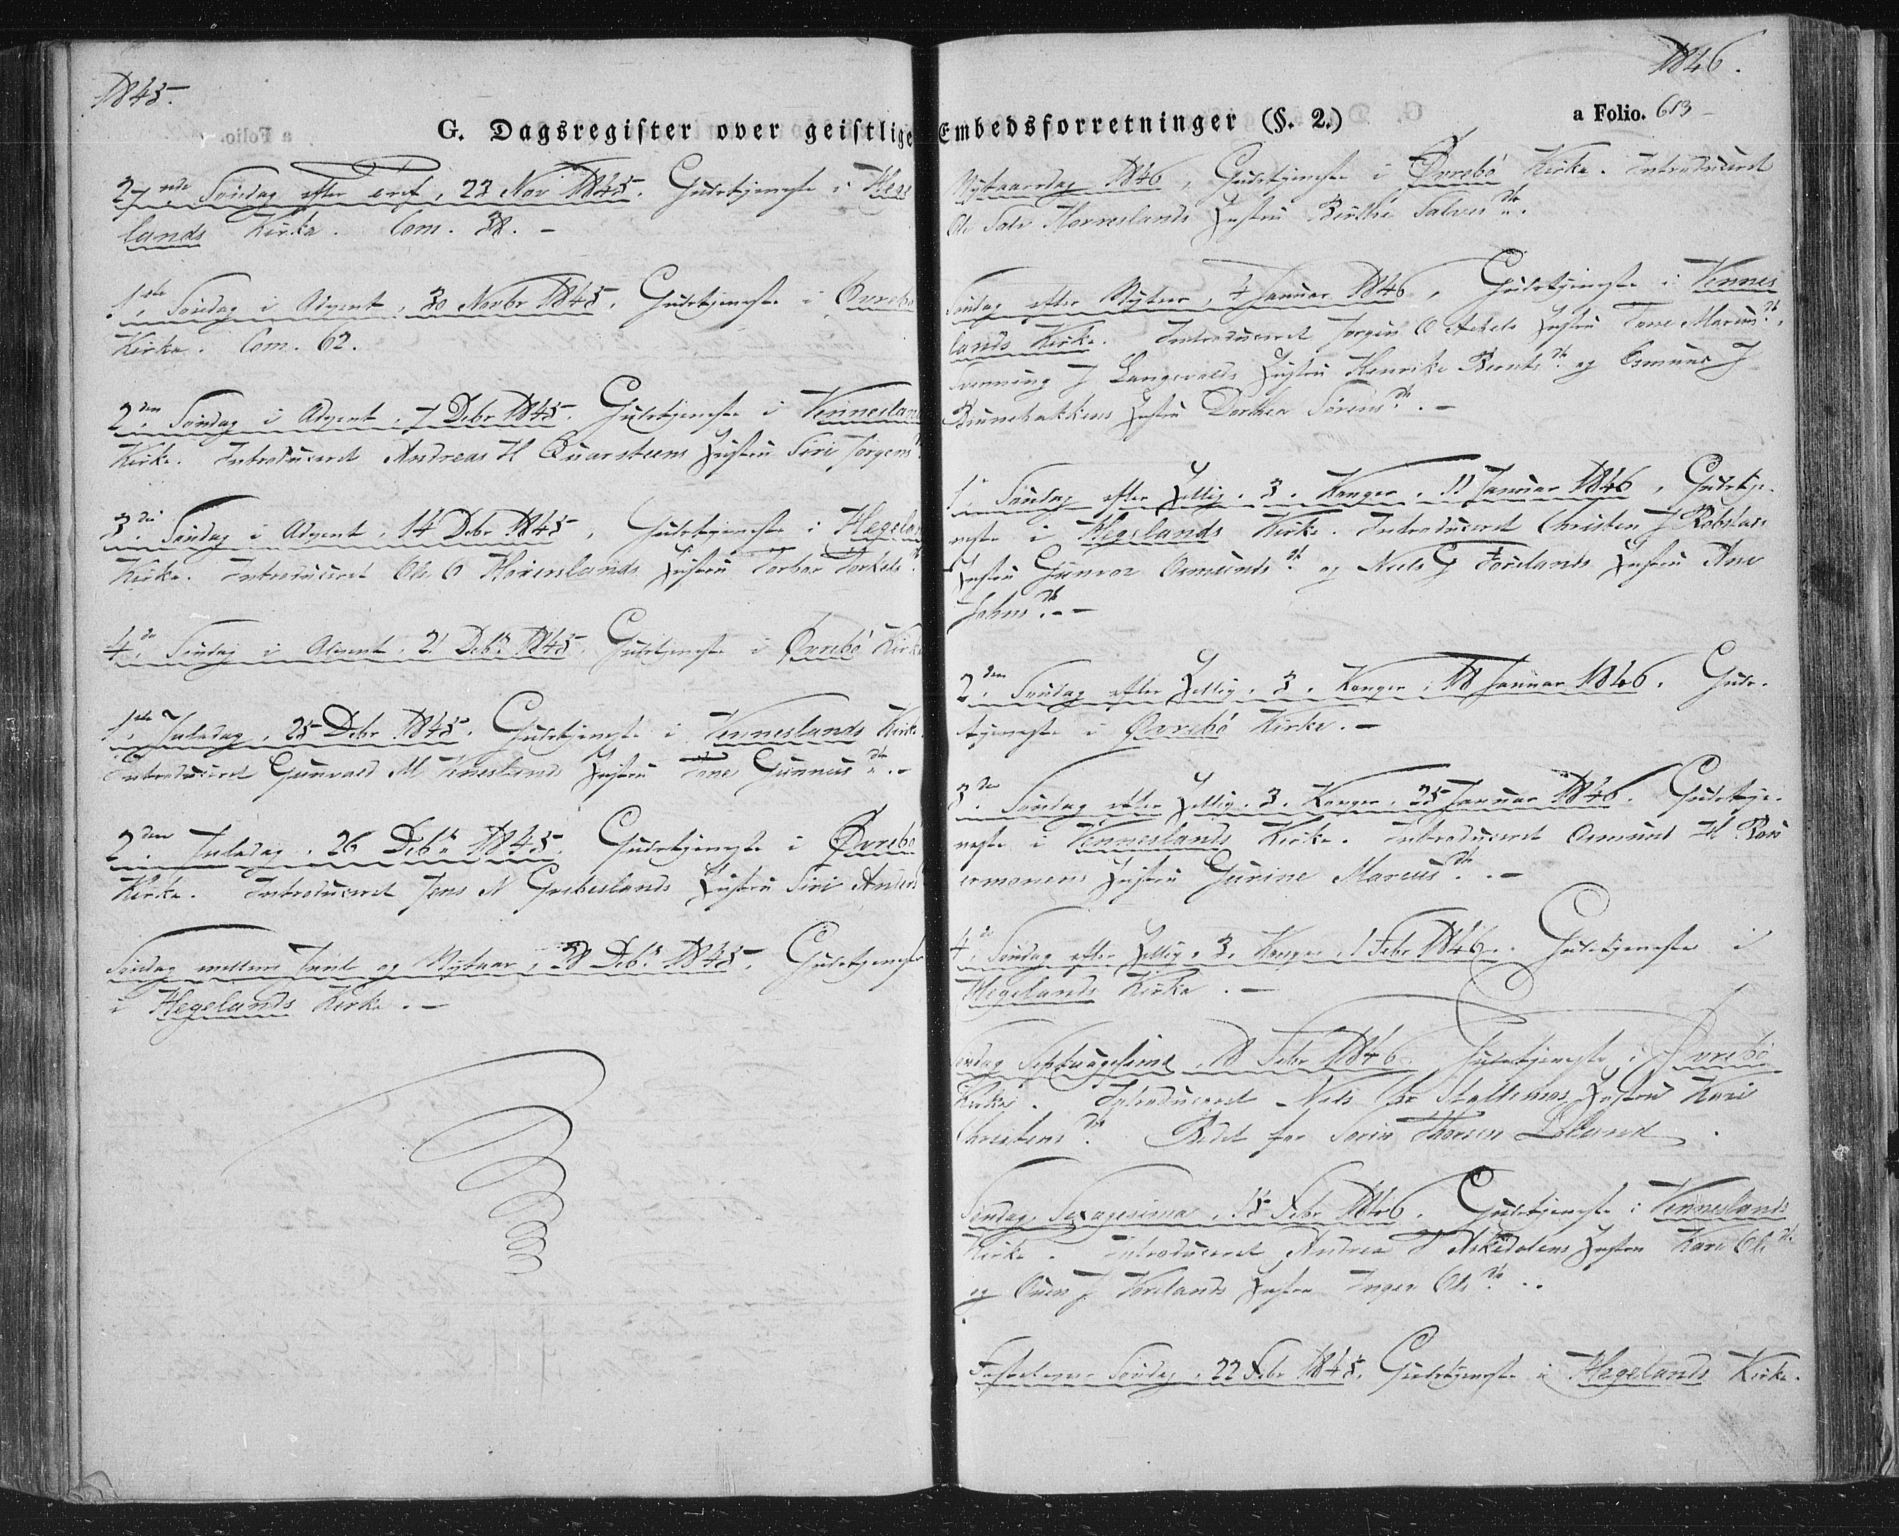 1845.
G. Dagsregister over geistlige
27nde Søndag efter Tref. 23 Nov 1845. Gudstjeneste i Hege
lands Kirke. Com. 38. –
1ste Søndag i Advent, 30 Novbr 1845. Gudstjeneste i Øvrebø
Kirke. Com. 62.
2den Søndag i Advent, 7 Debr 1845. Gudstjeneste i Venneslands
Kirke. Introduceret Andreas H Quarsteens Hustru Siri Jørgens
3die Søndag i Advent, 14 Debr 1845, Gudstjeneste i Hegelands
Kirke. Introduceret Ole O Hørverslands Hustru Torbor Torkels
4de Søndag i Advent, 21 Debr 1845. Gudstjeneste i Øvrebø Kirke
1ste Juledag, 25 Debr 1845. Gudstjeneste i Venneslands Kirke.
Introduceret Gunvald M Venneslands Hustru Tone Gunneus Dtr. –
2den Juledag, 26 Debr 1845. Gudstjeneste i Øvrebø
Kirke. Introduceret Jens N Greibeslands Hustru Siri Anders
Søndag mellem Juul og Nytaar, 28 Debr 1845. Gudstjeneste
i Hegelands Kirke. –
1846.
Embedsforretninger (§. 2.)
a Folio. 613
Nytaarsdag 1846, Gudstjeneste i Øvrebø Kirke. Introduceret
Ole Salv Horverslands Hustru Birthe Salves Dtr.
Søndag efter Nytaar, 4 Januar 1846, Gudstjeneste i Vennes
lands Kirke. Introduceret Jørgen O Hustru Tone Marcus Dtr,
Svenning J Langevalds Hustru Henrike Bernts Dtr og Osmund J
Bunebakkens Hustru Dorthea Sørens Dtr. –
1ste Søndag efter Hellig. 3. Konger. 11 Januar 1846, Gudstje-
neste i Hegelands Kirke. Introduceret Christen J Robstads
Hustru Gunvor Osmunds Dtr og Niels G Førelands Hustru Ane
Johns Dtr. –
2den Søndag efter Hellig. 3. Konger, 18 Januar 1846. Guds-
tjeneste i Øvrebø Kirke. –
3die Søndag efter Hellig. 3. Konger, 25 Januar 1846. Gudstje-
neste i Venneslands Kirke. Introduceret Osmund H
Hustru Gurine Marcus Dtr. –
4de Søndag efter Hellig. 3. Konger, 1 Febr 1846. Gudstjeneste i
Hegelands Kirke. –
Søndag Septuagesima, 8 Febr 1846. Gudstjeneste i Øvrebø
Kirke. Introduceret Niels Stallemos Hustru Kari
Christens Dtr. Bedet for Soren Thorsen Loland.
Søndag Sexagesima, 15 Febr 1846. Gudstjeneste i Venneslands
Kirke. Introduceret Andrea T Askedalens Hustru Kari Ols Dtr
og Ouen J Vorelands Hustru Inger Ols Dtr.
Fastelavns Søndag, 22 Febr 1845. Gudstjeneste i Hegelands Kirke.